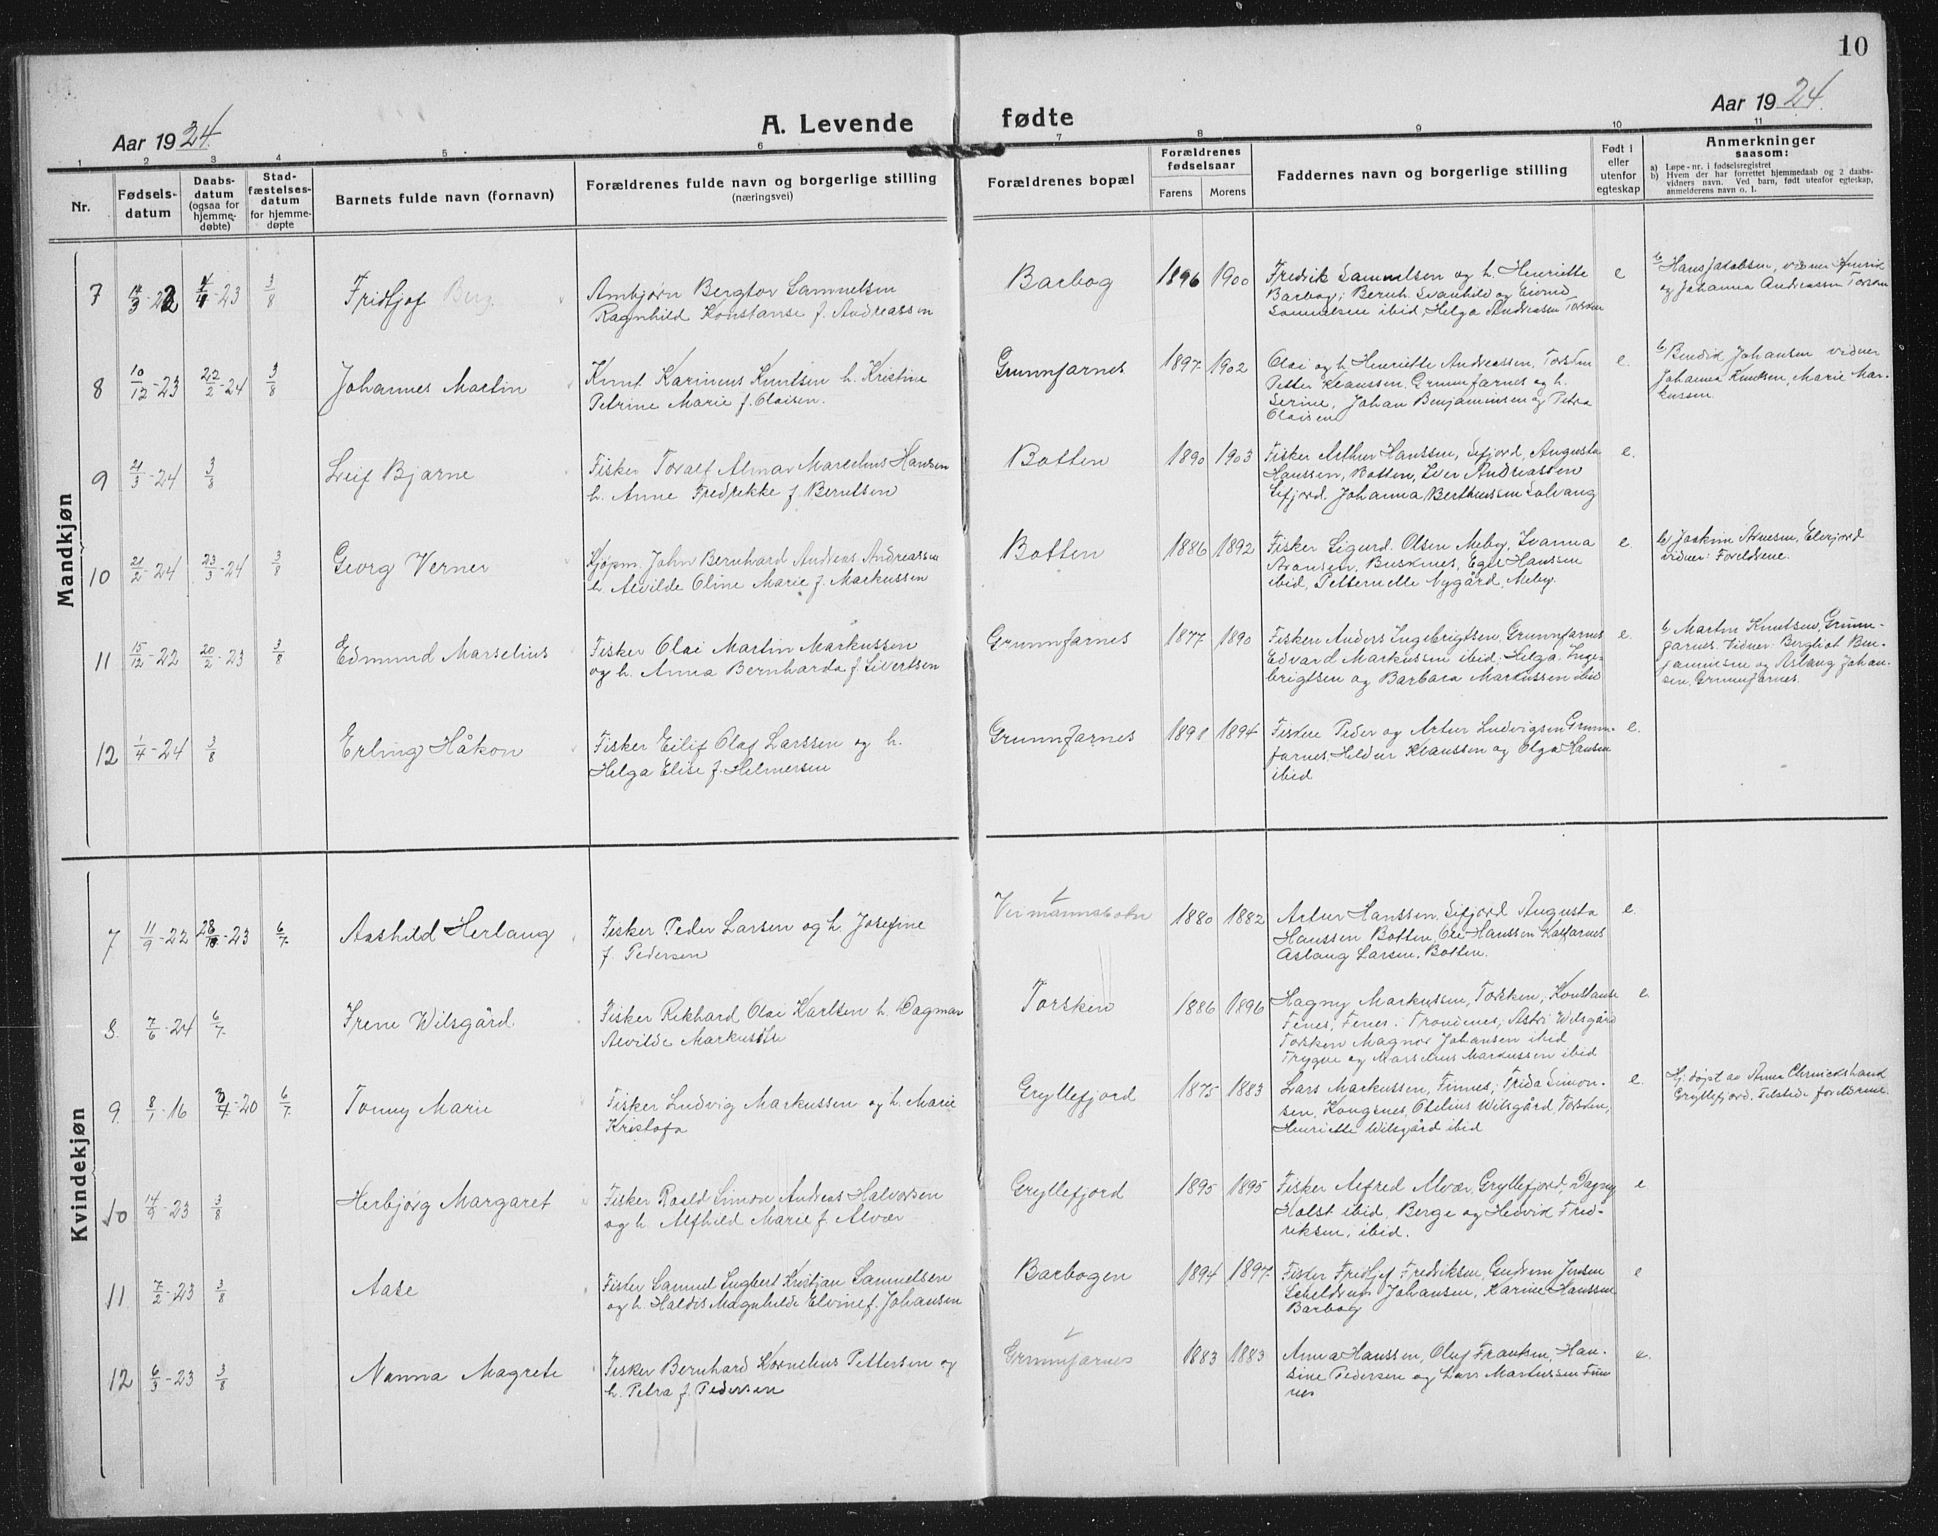 10
Aar 1924.
A. Levende
fødte
Aar 1924.
1 2 3 4 5 6 7 8 9 10 11
Nr.
Fødsels-
datum
Daabs-
datum
(ogsaa for
hjemme-
døbte)
Stad-
fæstelses-
datum
for hjemme-
døpte
Barnets fulde navn (fornavn)
Forældrenes fulde navn og borgerlige stilling
(næringsvei)
Forældrenes bopæl
Forældrenes
fødselsaar
Farens Morens
Faddernes navn og borgerlige stilling
Født i
eller
utenfor
egteskap
Anmerkninger
saasom:
a) Løpe-nr. i fødselsregistret
b) Hvem der har forrettet hjemmedaab og 2 daabs-
vidners navn. Ved barn, født utenfor egteskap,
anmelderens navn o. l.
Mandkjøn
7 14/9-22 4/4-23 3/8 Fridtjof Berg
Ambjørn Bergtor Samuelsen
Ragnhild Konstanse f. Andreassen
Barbog 1896 1900
Fredrik Samuelsen og h. Henriette
Barbog; Bernh. Svanhild og Eivind
Samuelsen ibid, Helga Andreasen Torsken
e
Hans Jakobsen, vidner
og Johanna Andreassen Torsken
8 10/12-23 22/2-24 3/8 Johannes Martin
Knut Karineus Knutsen h. Kristine
Petrine Marie f. Olaisen.
Grunnfarnes 1897 1902
Olai og h. Henriette Andreassen, Torsken
Petter Klaussen, Grunnfarnes og h.
Serine, Johan Benjaminsen og Petra
Olaisen
e.
Bendik Johansen vidner
Johanna Knudsen, Marie Mar-
kussen.
9 21/3-24 3/8 Leif Bjarne
Fisker Toralf Almar Marselius Hansen
h. Anne Fredrikke f. Berntsen
Botten 1890 1903
Fisker Arthur Hanssen, Sifjord, Augusta
Hanssen, Botten, Iver Andreassen
Sifjord. Johanna Berthinssen Solvang
e.
10 21/2-24 23/3-24 3/8 Georg Verner
Kjøpm. John Bernhard Andreas Andreassen
h. Alvilde Oline Marie f. Markussen
Botten 1886 1892
Fisker Sigurd Olsen Meby, Ivanna
Aronsen, Busknes, Egil Hanssen
ibid, Petternelle Nygård, Meby.
e.
Joakim Arnesen, Elverjord
vidner: Foreldrene.
11 15/12-22 20/2-23 3/8 Edmund Marselius
Fisker Olai Martin Markussen
og h. Anna Bernharda f. Sivertsen
Grunnfarnes 1877 1890
Fiskere Anders Ingebrigtsen, Grunnfarnes
Edvard Markussen ibid, Helga Inge-
brigtsen og Barbara Markussen ibid
e.
Martin Knutsen, Grunn-
farnes. Vidner: Bergliot Ben-
jaminsen og Aslaug Johan-
sen, Grunnfarnes.
12 1/4-24 3/8 Erling Håkon
Fisker Eilif Olaf Larssen og h.
Helga Elise f. Helmersen
Grunnfarnes 1891 1894
Fiskere Peder og Artur Ludvigsen Grunn-
farnes, Heldur Klaussen og Olga Hansen
ibid
e.
Kvindekjøn
7 11/9-22 28/10-23 6/7. Aashild Herlaug
Fisker Peder Larsen og h. Josefine
f. Pedersen
1880 1882
Artur Hanssen, Sifjord Augusta
Hanssen Botten, Ole Hanssen Kalfarnes
Aslaug Larsen, Botten.
e.
8. 7/6-24 6/7. Irene Wilsgård
Fisker Rikhard Olai Karlsen h. Dagmar
Alvilde Markussen
Torsken 1886 1896
Hagny Markussen, Torsken, Konstanse
Fenes, Fenes i Trondenes; Astri Wilsgård
Torsken Magnor Johansen ibid
Trygve og Marselius Markussen ibid
e.
9. 8/1-16 3/1-20 6/7. Tonny Marie
Fisker Ludvig Markussen og h. Marie
Kristofa
Gryllefjord 1875 1883
Lars Markussen, Finnes; Frida Simon-
sen, Kongsnes, Otelius Wilsgård, Torsken,
Henriette Wilsgård ibid
e.
Hj. døpt av Anna
Gryllefjord. Tilstede foreldrene.
10 14/9-23 3/8 Herbjørg Margaret
Fisker Roald Simon Andreas Halvorsen
og h. Alfhild Marie f. Alvær
Gryllefjord 1895 1895
Fisker Alfred Alvær, Gryllefjord, Dagny
Holst ibid, Berge og Hedvid Fred-
riksen, ibid.
e
11 7/2-23 3/8 Aase
Fisker Samuel Ingbert Kristian Samuelsen
og h. Haldis Magnhilde Elvine f. Johansen
Barbogen 1894 1897.
Fisker Fridtjof Fredriksen, Gudrun Jensen
Scheldrup Johansen, Karine Hanssen
Barbog
e
12 6/3-23 3/8 Nanna Magrete
Fisker Bernhard Kornelius Pettersen og
h. Petra f. Pedersen
Grunnfarnes 1883 1883
Anna Hanssen, Oluf Frantsen, Han-
sine Pedersen og Lars Markussen Finn-
nes
e.